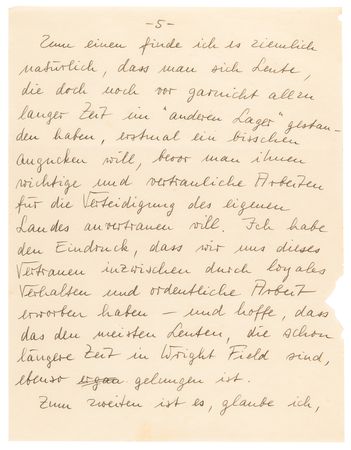 -5-
Zum einen finde ich es ziemlich
natürlich, dass man sich Leute,
die doch noch vor garnicht allzu
langer Zeit im "anderen Lager" gestan-
den haben, erstmal ein bisschen
angucken will, bevor man ihnen
wichtige und vertrauliche Arbeiten
für die Verteidigung des eigenen
Landes anvertrauen will. Ich habe
den Eindruck, dass wir uns dieses
Vertrauen inzwischen durch loyales
Verhalten und ordentliche Arbeit
erworben haben – und hoffe, dass
das den meisten Leuten, die schon
längere Zeit in Wright Field sind,
ebenso gelungen ist.
Zum zweiten ist es, glaube ich,